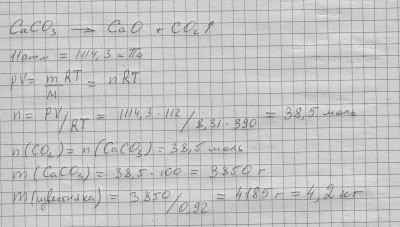 CaCO₃ → CaO + CO₂↑
11атм = 1114,3 кПа
PV = m/M RT = nRT
n = PV/RT = 1114,3 · 112/8,31 · 390 = 38,5 моль
n(CO₂) = n(CaCO₃) = 38,5 моль
m(CaCO₃) = 38,5 · 100 = 3850 г
m(известняка) = 3850/0,92 = 4185 г = 4,2 кг